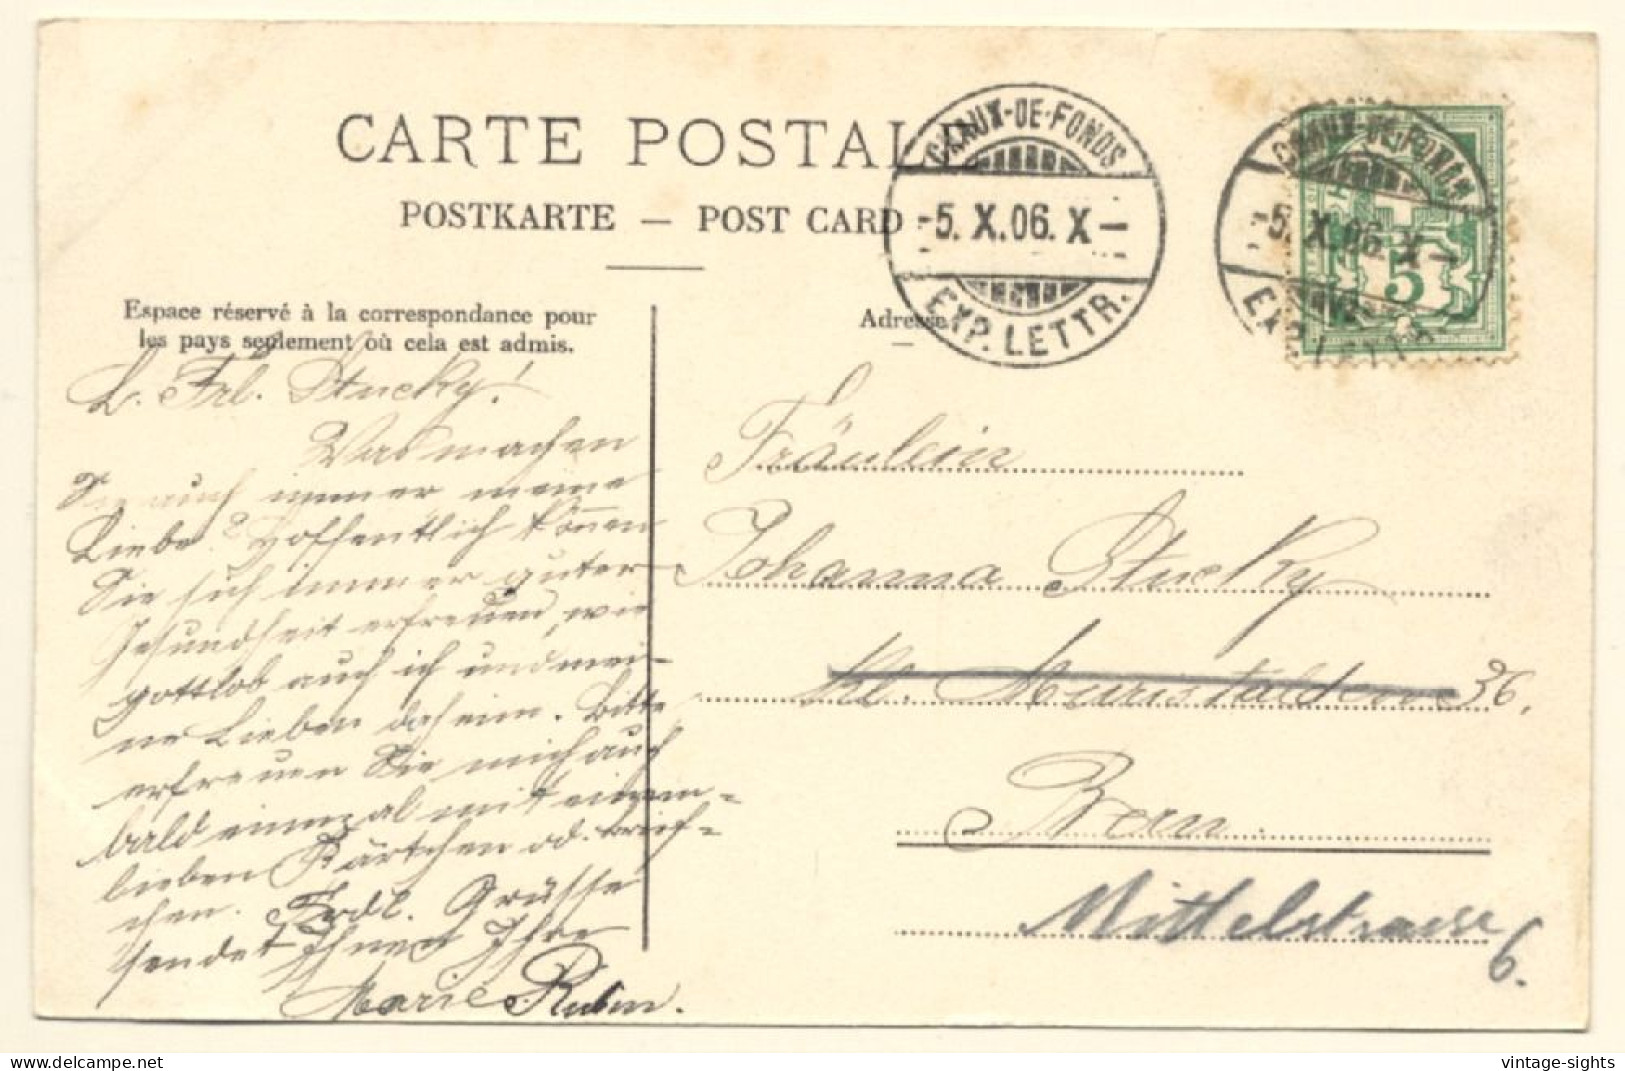 CARTE POSTALE
POSTKARTE — POST CARD
CHAUX-DE-FONDS
-5. X. 06. X-
EXP. LETTR.
CHAUX-DE-FONDS
-5. X. 06. X-
EXP. LETTR.
5
Espace réservé à la correspondance pour
les pays seulement où cela est admis.
Adresse
L. Frl. Stucky!
Was machen
Sie auch immer meine
Liebe? Hoffentlich können
Sie sich immer guter
Gesundheit erfreuen, wie
gottlob auch ich und mei-
ne Lieben daheim. Bitte
erfreuen Sie mich auch
bald einmal mit einem
lieben Kärtchen od. Brief-
chen. Frdl. Grüsse
sendet Ihnen Ihre
Marie Rubin.
Fräulein
Johanna Stucky
kl. Muristalden 36.
Bern.
Mittelstrasse
6.
delcampe.net
vintage-sights